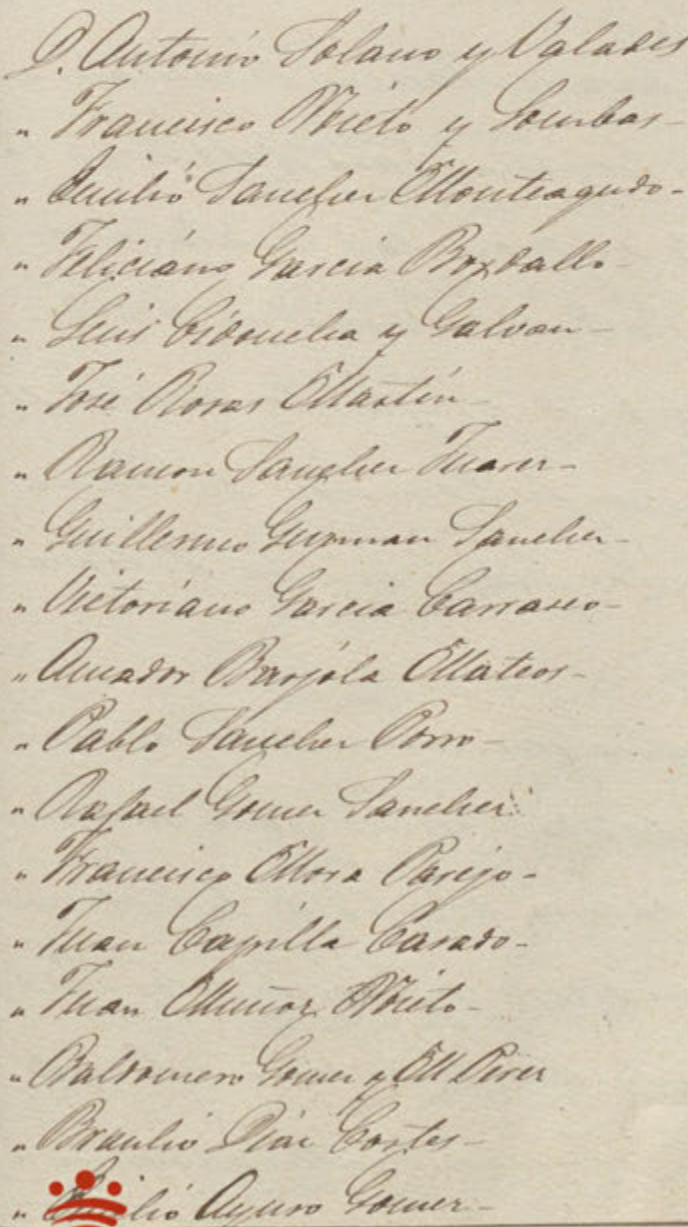 D. Antonio Solano y Valades
" Francisco Nieto y Lumbas -
" Emilio Sancher Monteagudo -
" Feliciano Garcia Boxballo -
" Luis Cidoncha y Galvan -
" José Rosas Martín -
" Ramon Sancher Suarer -
" Guillermo Guzman Sancher -
" Victoriano Garcia Carrasco -
" Amador Barjola Mateos -
" Pablo Sancher Porro -
" Rafael Gomer Sancher
" Francisco Mora Parejo -
" Juan Capilla Casado -
" Juan Muñoz Nieto -
" Baldomero Gomer y M Perer
" Braulio Diar Cortes -
" Ayuso Gomer -